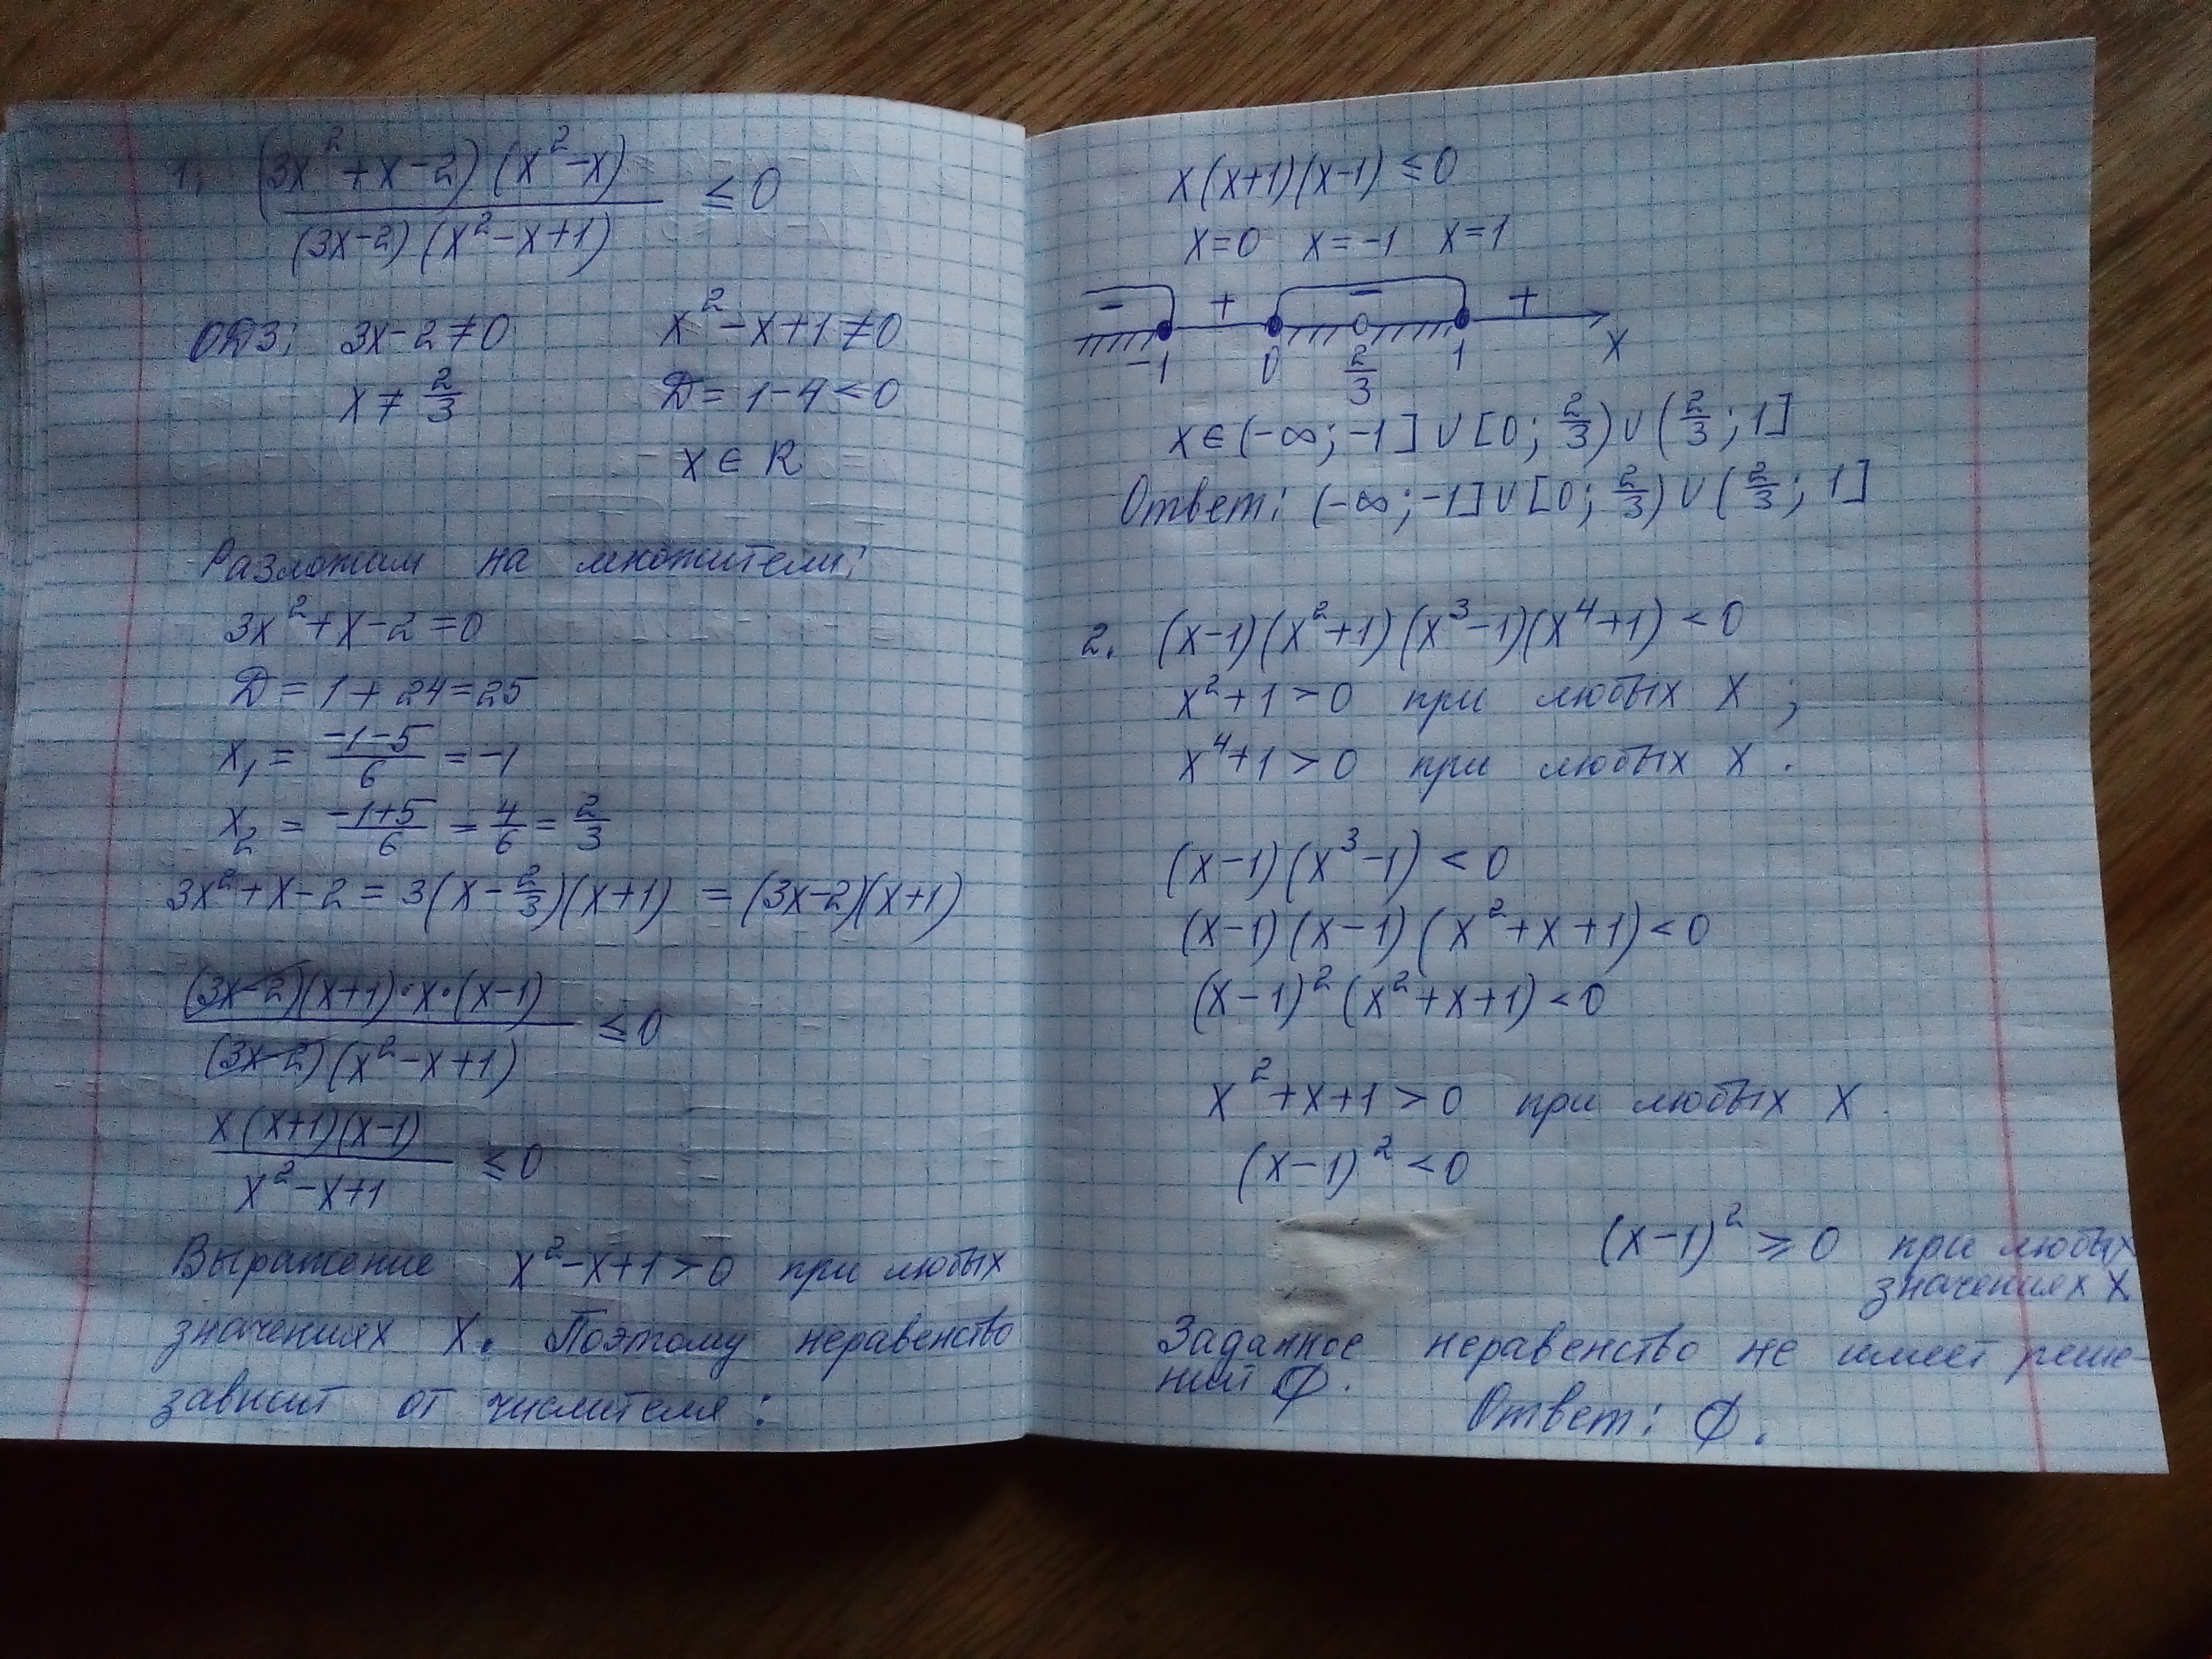 1. (3x²+x-2)(x²-x) / (3x-2)(x²-x+1) ≤ 0
ОДЗ: 3x-2≠0 x²-x+1≠0
x≠2/3 D=1-4<0
x∈R
Разложим на множители:
3x²+x-2=0
D=1+24=25
x₁ = (-1-5)/6 = -1
x₂ = (-1+5)/6 = 4/6 = 2/3
3x²+x-2 = 3(x-2/3)(x+1) = (3x-2)(x+1)
(3x-2)(x+1)·x·(x-1) / (3x-2)(x²-x+1) ≤ 0
x(x+1)(x-1) / x²-x+1 ≤ 0
Выражение x²-x+1>0 при любых
значениях x. Поэтому неравенство
зависит от числителя:
x(x+1)(x-1) ≤ 0
x=0 x=-1 x=1
- + - +
-1 0 2/3 1 x
x∈(-∞;-1]∪[0;2/3)∪(2/3;1]
Ответ: (-∞;-1]∪[0;2/3)∪(2/3;1]
2. (x-1)(x²+1)(x³-1)(x⁴+1) < 0
x²+1>0 при любых x;
x⁴+1>0 при любых x.
(x-1)(x³-1) < 0
(x-1)(x-1)(x²+x+1)<0
(x-1)²(x²+x+1)<0
x²+x+1>0 при любых x
(x-1)²<0
(x-1)² ≥ 0 при любых
значениях x
Заданное неравенство не имеет реше-
ний ∅.
Ответ: ∅.